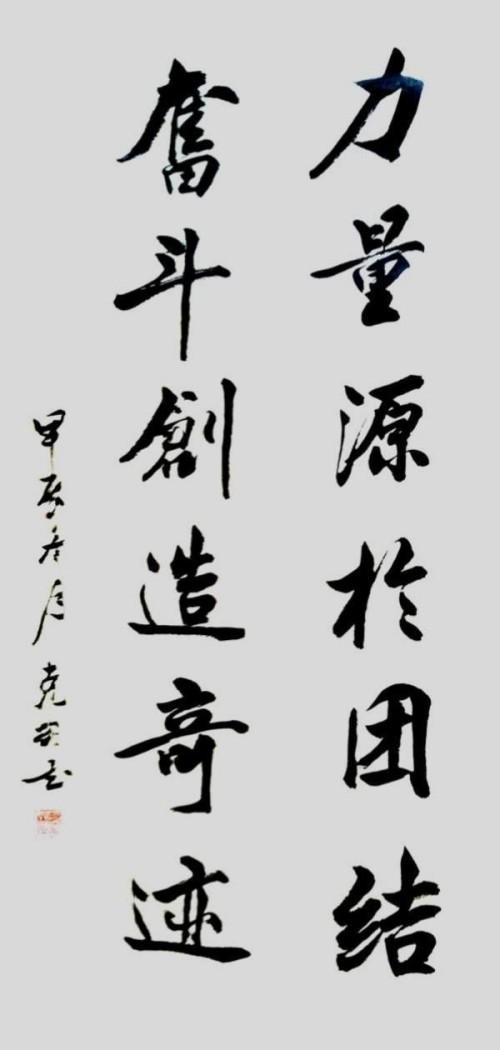 力量源於团结
奮斗創造奇迹
甲辰冬月